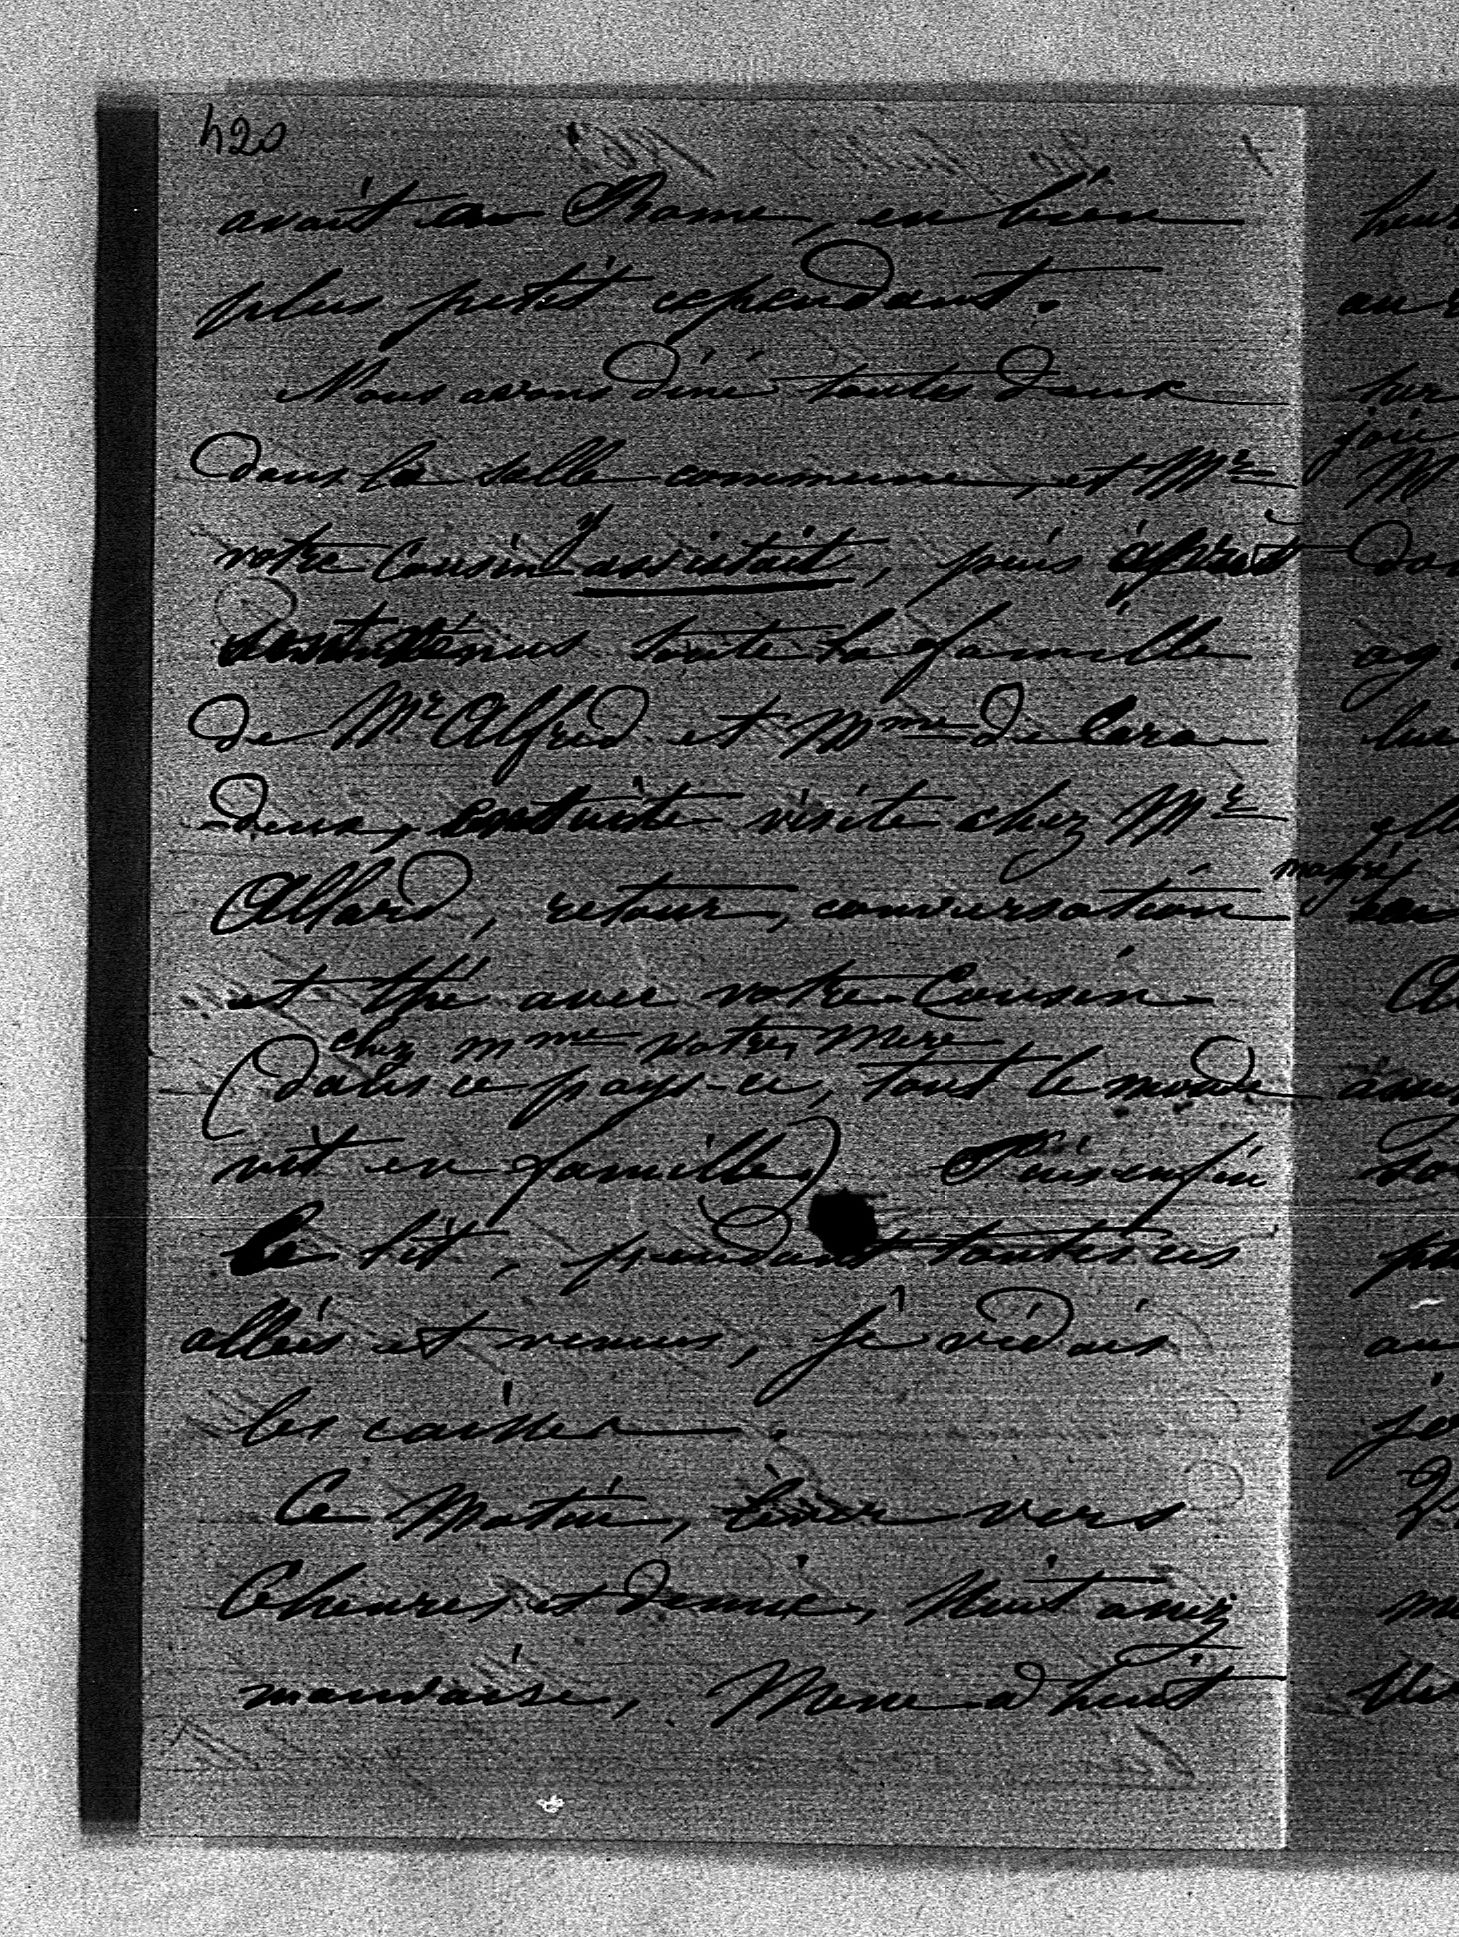 420
avait en Rome, en bien
plus petit cependant.
Nous avons diné toutes deux
dans la salle commune, et Mr
votre Cousin y assistait, puis après
sont venus toute la famille
de Mr Alfred et Mme de Cara
deux, ensuite visite chez Mr
Allard, retour, conversation
et thé avec votre Cousin
chez Mme votre Mere
(dans ce pays-ci, tout le monde
vit en famille) Puis enfin
le lit, pendant toutes ces
allées et venues, je vidais
les caisses.
Ce Matin, lever vers
6 heures et demie, Nuit assez
mauvaise, Messe a huit